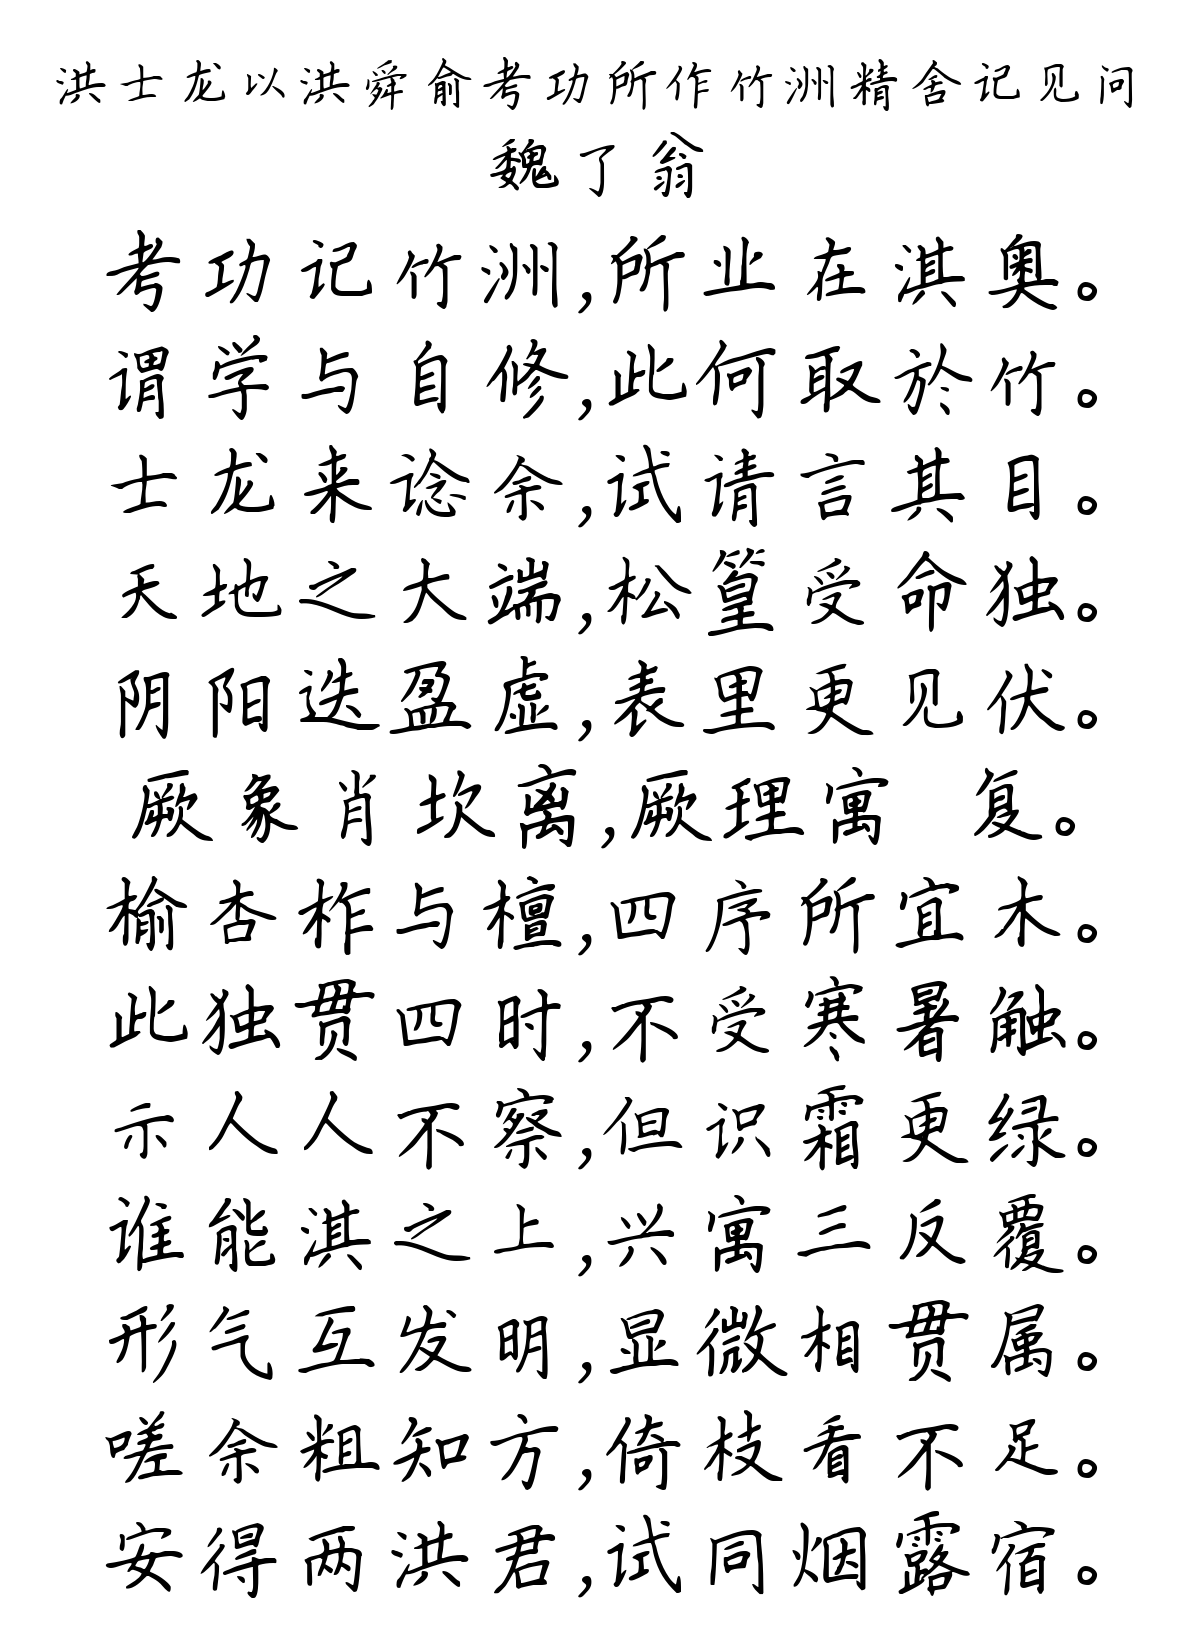 洪士龙以洪舜俞考功所作竹洲精舍记见问
魏了翁
考功记竹洲,所业在淇奥。
谓学与自修,此何取於竹。
士龙来谂余,试请言其目。
天地之大端,松篁受命独。
阴阳迭盈虚,表里更见伏。
厥象肖坎离,厥理寓 复。
榆杏柞与檀,四序所宜木。
此独贯四时,不受寒暑触。
示人人不察,但识霜更绿。
谁能淇之上,兴寓三反覆。
形气互发明,显微相贯属。
嗟余粗知方,倚枝看不足。
安得两洪君,试同烟露宿。